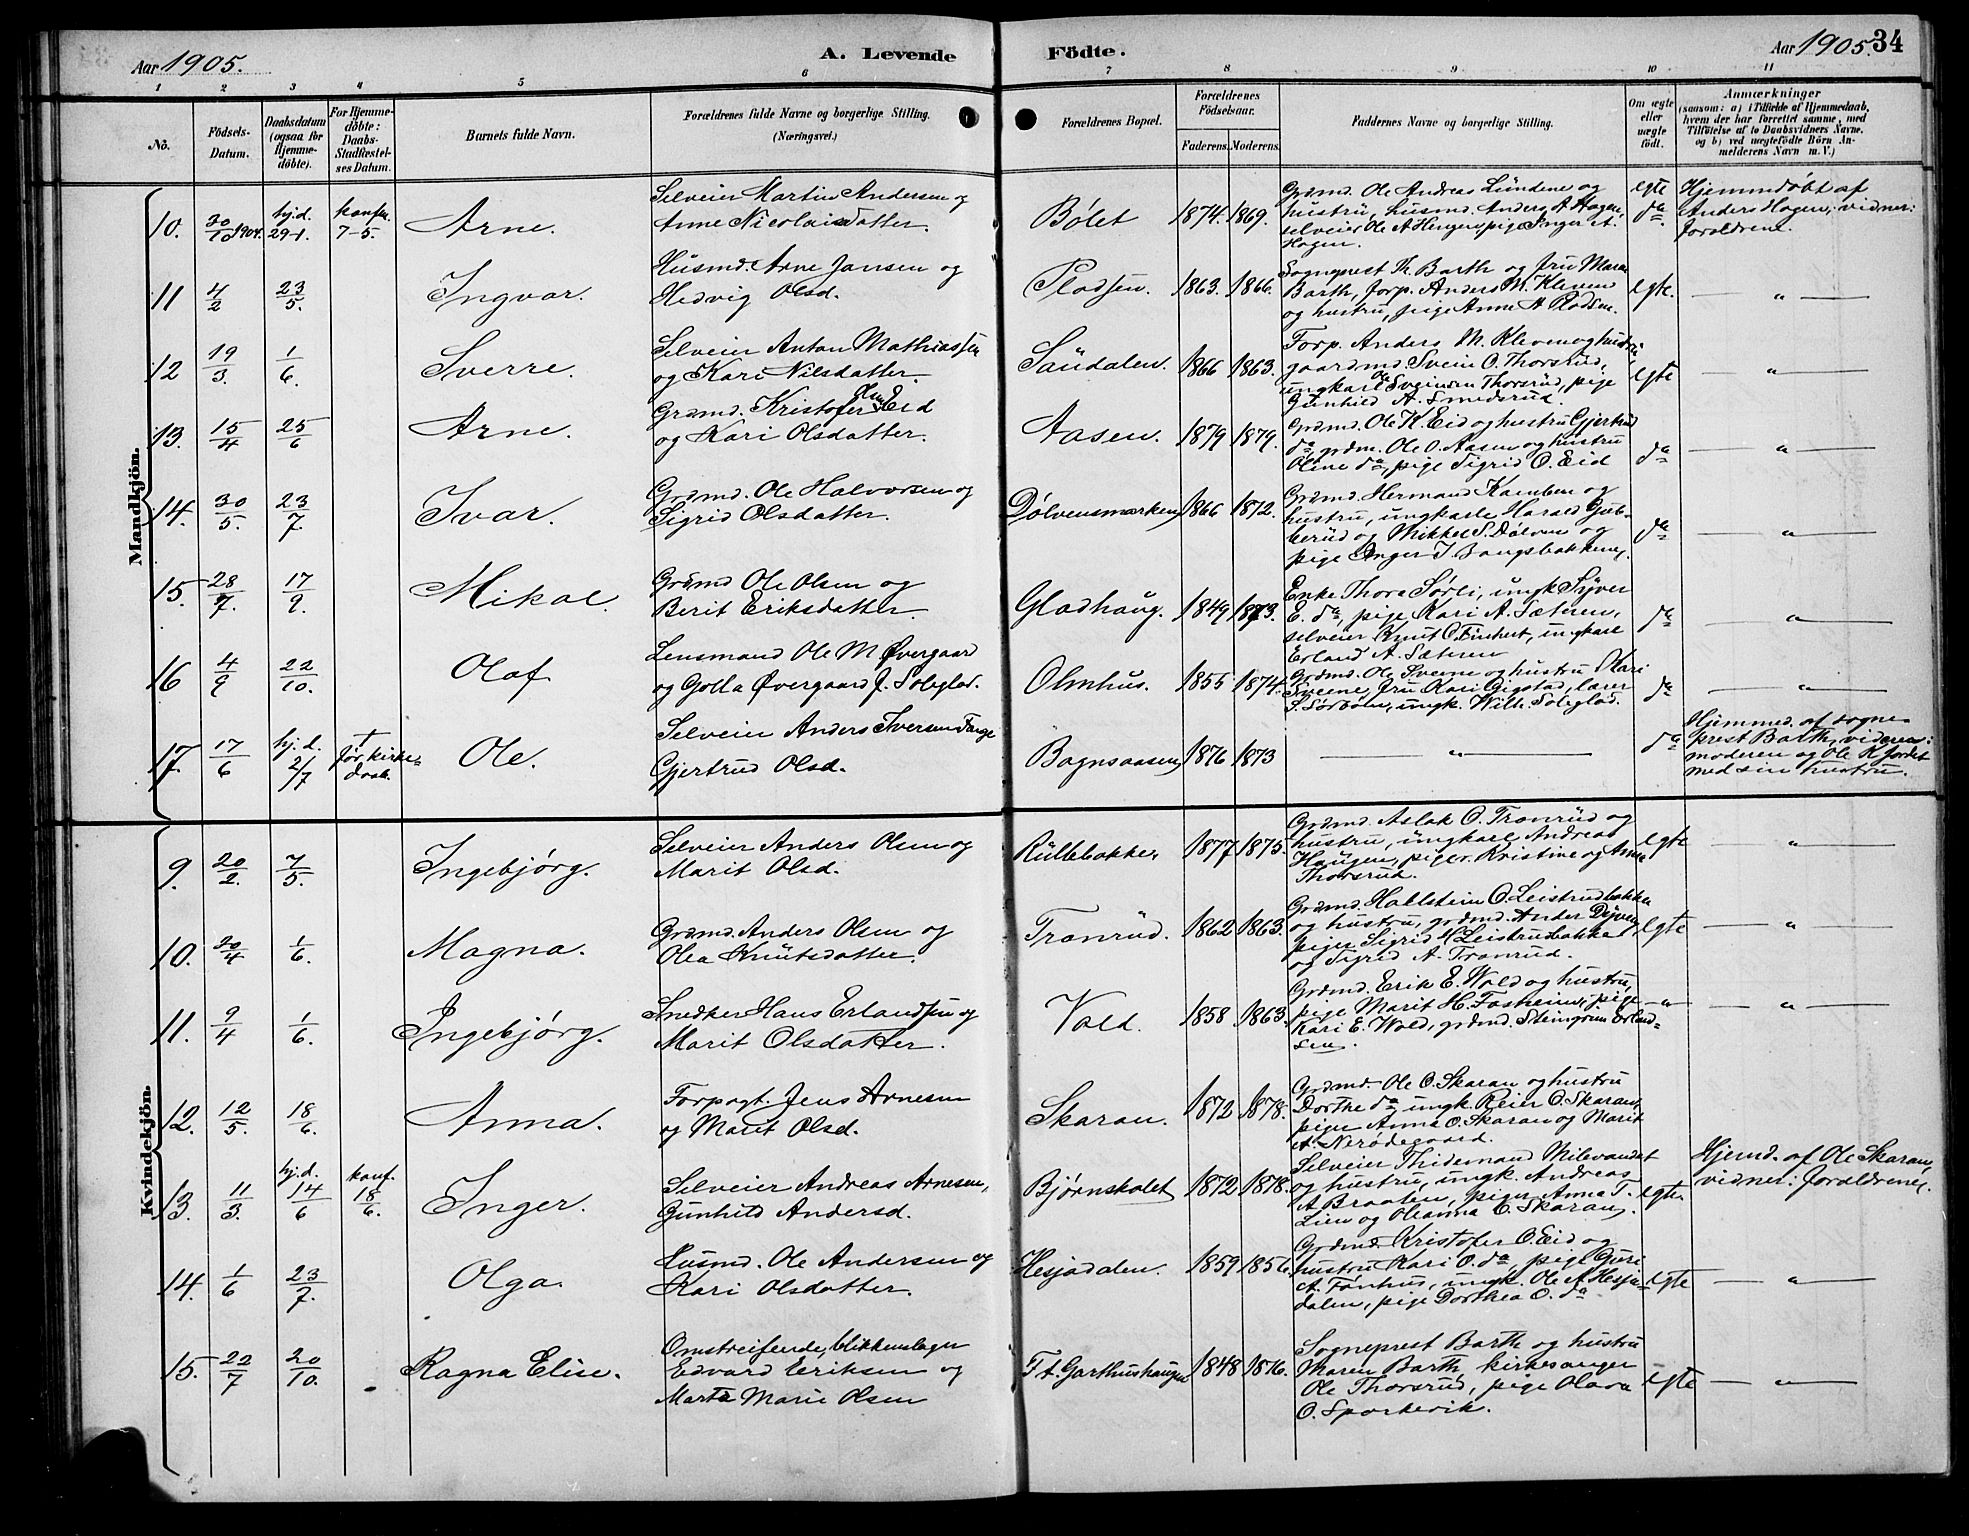 Aar 1905.
A. Levende
Födte.
Aar 1905.
34
1 2 3 4 5 6 7 8 9 10 11
No.
Födsels-
Datum.
Daabsdatum
(ogsaa for
Hjemme-
döbte).
For Hjemme-
döbte:
Daabs-
Stadfæstel-
ses Datum.
Barnets fulde Navn.
Forældrenes fulde Navne og borgerlige Stilling.
(Næringsvei.)
Forældrenes Bopæl.
Forældrenes
Födselsaar.
Faderens.
Moderens.
Faddernes Navne og borgerlige Stilling.
Om ægte
eller
uægte
födt.
Anmærkninger
(saasom: a) i Tilfælde af Hjemmedaab,
hvem der har forrettet samme, med
Tilföielse af to Daabsvidners Navne.
og b) ved uægtefödte Börn An-
melderens Navn m. V.)
Mandkjön.
10. 30/10 1904. hj.d. 29-1. konfr. 7-5. Arne.
Selveier Martin Andersen og
Anne Nicolaisdatter.
Bølet 1874. 1869.
Grdmd. Ole Andreas Lundene og
hustru, husmd. Anders A. Hagen,
selveier Ole A. Hengen, pige Inger A.
Hagen.
egte
da
Hjemmdøbt af
Anders Hagen; vidner:
foraldrene.
11 4/2 23/5. Ingvar.
Husmd. Arne Jansen og
Hedvig Olsd.
Pladsen. 1863. 1866.
Sogneprest Th. Barth og fru Maren
Barth, forp. Anders M. Kleven
og hustru, pige Anne A. Pladsen.
egte. — " —
12 19/3. 1/6. Sverre.
Selveier Anton Mathiassen
og Kari Nilsdatter.
Saudalen. 1866 1863.
Forp. Anders M. Kleven og hustru
gaardmd Svein O. Thorsrud,
ungkarl Ole Sveinsen Thorsrud, pige
Gunhild A. Smedsrud.
egte — " —
13. 15/4 25/6 Arne.
Grdmd. Kristofer Olsen Eid
og Kari Olsdatter.
Aasen. 1879 1879.
Grdmd. Ole K. Eid og hustru Gjertrud
da, grdm. Ole O. Aasen og hustru
Oline da, pige Sigrid O. Eid
da — " —
14. 30/5. 23/7. Ivar.
Grdmd. Ole Halvorsen og
Sigrid Olsdatter.
Dølvensmarken 1866 1872.
Grdmd. Hermand Kamben og
hustru, ungkarle Harald Gub-
berud og Mikkel S. Dølven og
pige Inger I. Bangsbakken.
da — " —
15. 28/7. 17/9. Mikal.
Grdmd Ole Olsen og
Berit Eriksdatter
Gladhaug. 1849 1873.
Enke Thora Sørli, ungk Syver
E. da, pige Kari A. Sæteren,
selveier Knut O. Finhert, ungkarl
Erland A. Sæteren
da — " —
16 4/9 22/10. Olaf
Lensmand Ole M Øvergaard
og Golla Øvergaard f. Soleglad.
Olmhus. 1855 1874.
Grdmd. Ole Sveene og hustru Kari
Sveene, fru Kari Gigstad, lærer
S. Sørbølen, ungk. Wilh. Soleglad.
da — " —
17. 17/6 hj.d. 2/7 † før kirke-
daab. Ole.
Selveier Anders Iversen Fauge
Gjertrud Olsd.
Bagnsaasen 1876 1873
— " — da
Hjemmed. af sogne-
prest Barth, vidner:
moderen og Ole K Jordet
med sin hustru.
Kvindekjön.
9. 20/2. 7/5. Ingebjørg.
Selveier Anders Olsen og
Marit Olsd.
Rullebakken 1877 1875.
Grdmd. Aslak O. Tranrud og
hustru, ungkarl Andreas
Haugen, piger Kristine og Anne
Thorsrud.
egte — " —
10. 20/4 1/6. Magna.
Grdmd. Anders Olsen og
Olea Knutsdatter.
Tranrud. 1862 1863.
Grdmd. Hallstein O. Leistrudbakka
og hustru, grdmd. Ander Døven
piger Sigrid H Leistrudbakka
og Sigrid A. Tranrud.
egte — " —
11. 9/4 1/6. Ingebjørg.
Snedker Hans Erlandsen og
Marit Olsdatter.
Vold. 1858 1863.
Grdmd. Erik E. Wold og hustru,
pige Marit H. Fosheim, pige
Kari E. Wold, grdmd. Steingrim Erland-
sen.
— " — — " —
12. 12/5. 18/6. Anna.
Forpagt. Jens Arnesen
og Marit Olsd.
Skaran. 1872 1878.
Grdmd. Ole O. Skaran og hustru
Dorthe da, ungk. Reier O. Skaran,
piger Anna O. Skaran og Marit
A. Nerødegaard.
13. 11/3. hj.d. 14/6 konf. 18/6. Inger.
Selveier Andreas Arnesen,
Gunhild Andersd.
Bjørnskolet 1872 1878.
Selveier Thidemand Milevandet
og hustru, ungk. Andreas
A Braaten, piger Anna T.
Lien og Oleanna O. Skaran.
egte.
Hjemd. af Ole Skaran,
vidner: foraldrene.
14. 1/6 23/7. Olga.
Husmd. Ole Andersen og
Kari Olsdatter.
Hesjadalen. 1859 1856.
Grdmd. Kristofer O. Eid og
hustru Kari O. da, pige Guri
A. Fønhus, ungk. Ole A Hesja-
dalen, pige Dorthea O. da
egte — " —
15. 22/7 20/10. Ragna Elise.
Omstreifende, blikkenslager
Edvard Eriksen og
Marta Marie Olsen
F.t. Garthushaugen 1848 1876.
Sogneprest Barth og hustru
Maren Barth, kirkesanger
Ole Thorsrud, pige Olava
O. Sparkevik.
egte — " —